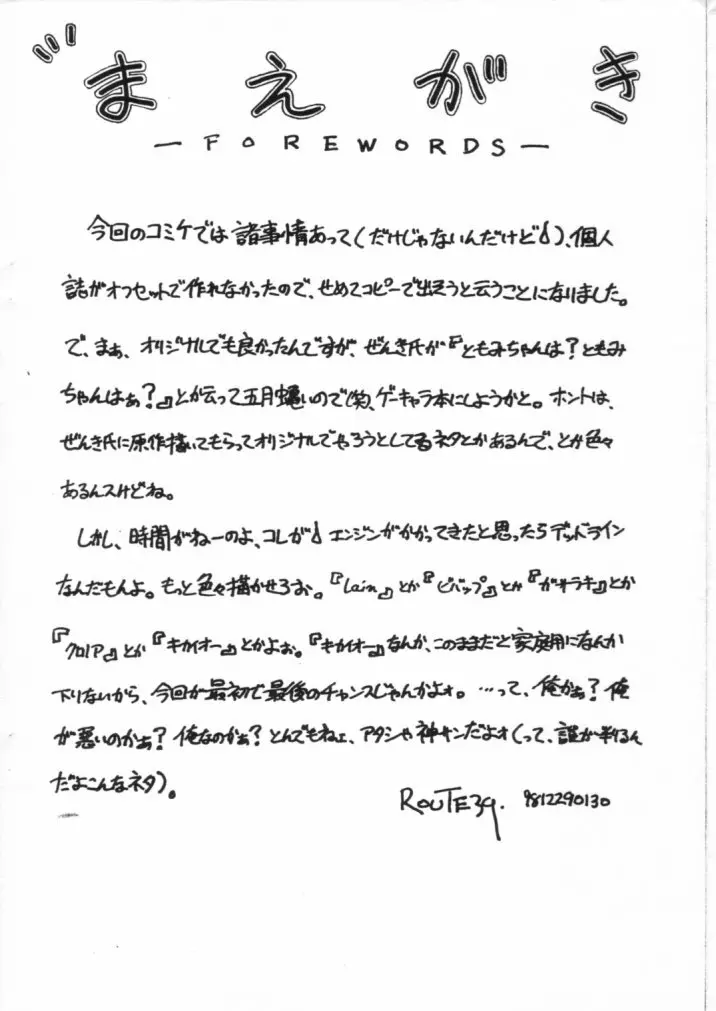 まえがき
— FOREWORDS —
今回のコミケでは諸事情あって(だけじゃないんだけど)、個人
誌がオフセットで作れなかったので、せめてコピーで出そうと云うことになりました。
で、まぁ、オリジナルでも良かったんですが、ぜんき氏が『ともみちゃんは?ともみ
ちゃんはぁ?』とか云って五月蠅いので(笑)、ゲーキャラ本にしようかと。ホントは、
ぜんき氏に原作描いてもらってオリジナルでやろうとしてるネタとかあるんで、とか色々
あるんスけどね。
しかし、時間がねーのよ、コレが エンジンがかかってきたと思ったらデッドライン
なんだもんよ。もっと色々描かせろぉ。『lain』とか『ビバップ』とか『ガサラキ』とか
『クロノア』とか『キカイオー』とかよぉ。『キカイオー』なんか、このままだと家庭用になんか
下りないから、今回が最初で最後のチャンスじゃんかよォ。…って、俺かぁ?俺
が悪いのかぁ?俺なのかぁ?とんでもねェ、アタシゃ神サンだよォ(って、誰が判るん
だよこんなネタ)。
ROUTE39. 9812290130